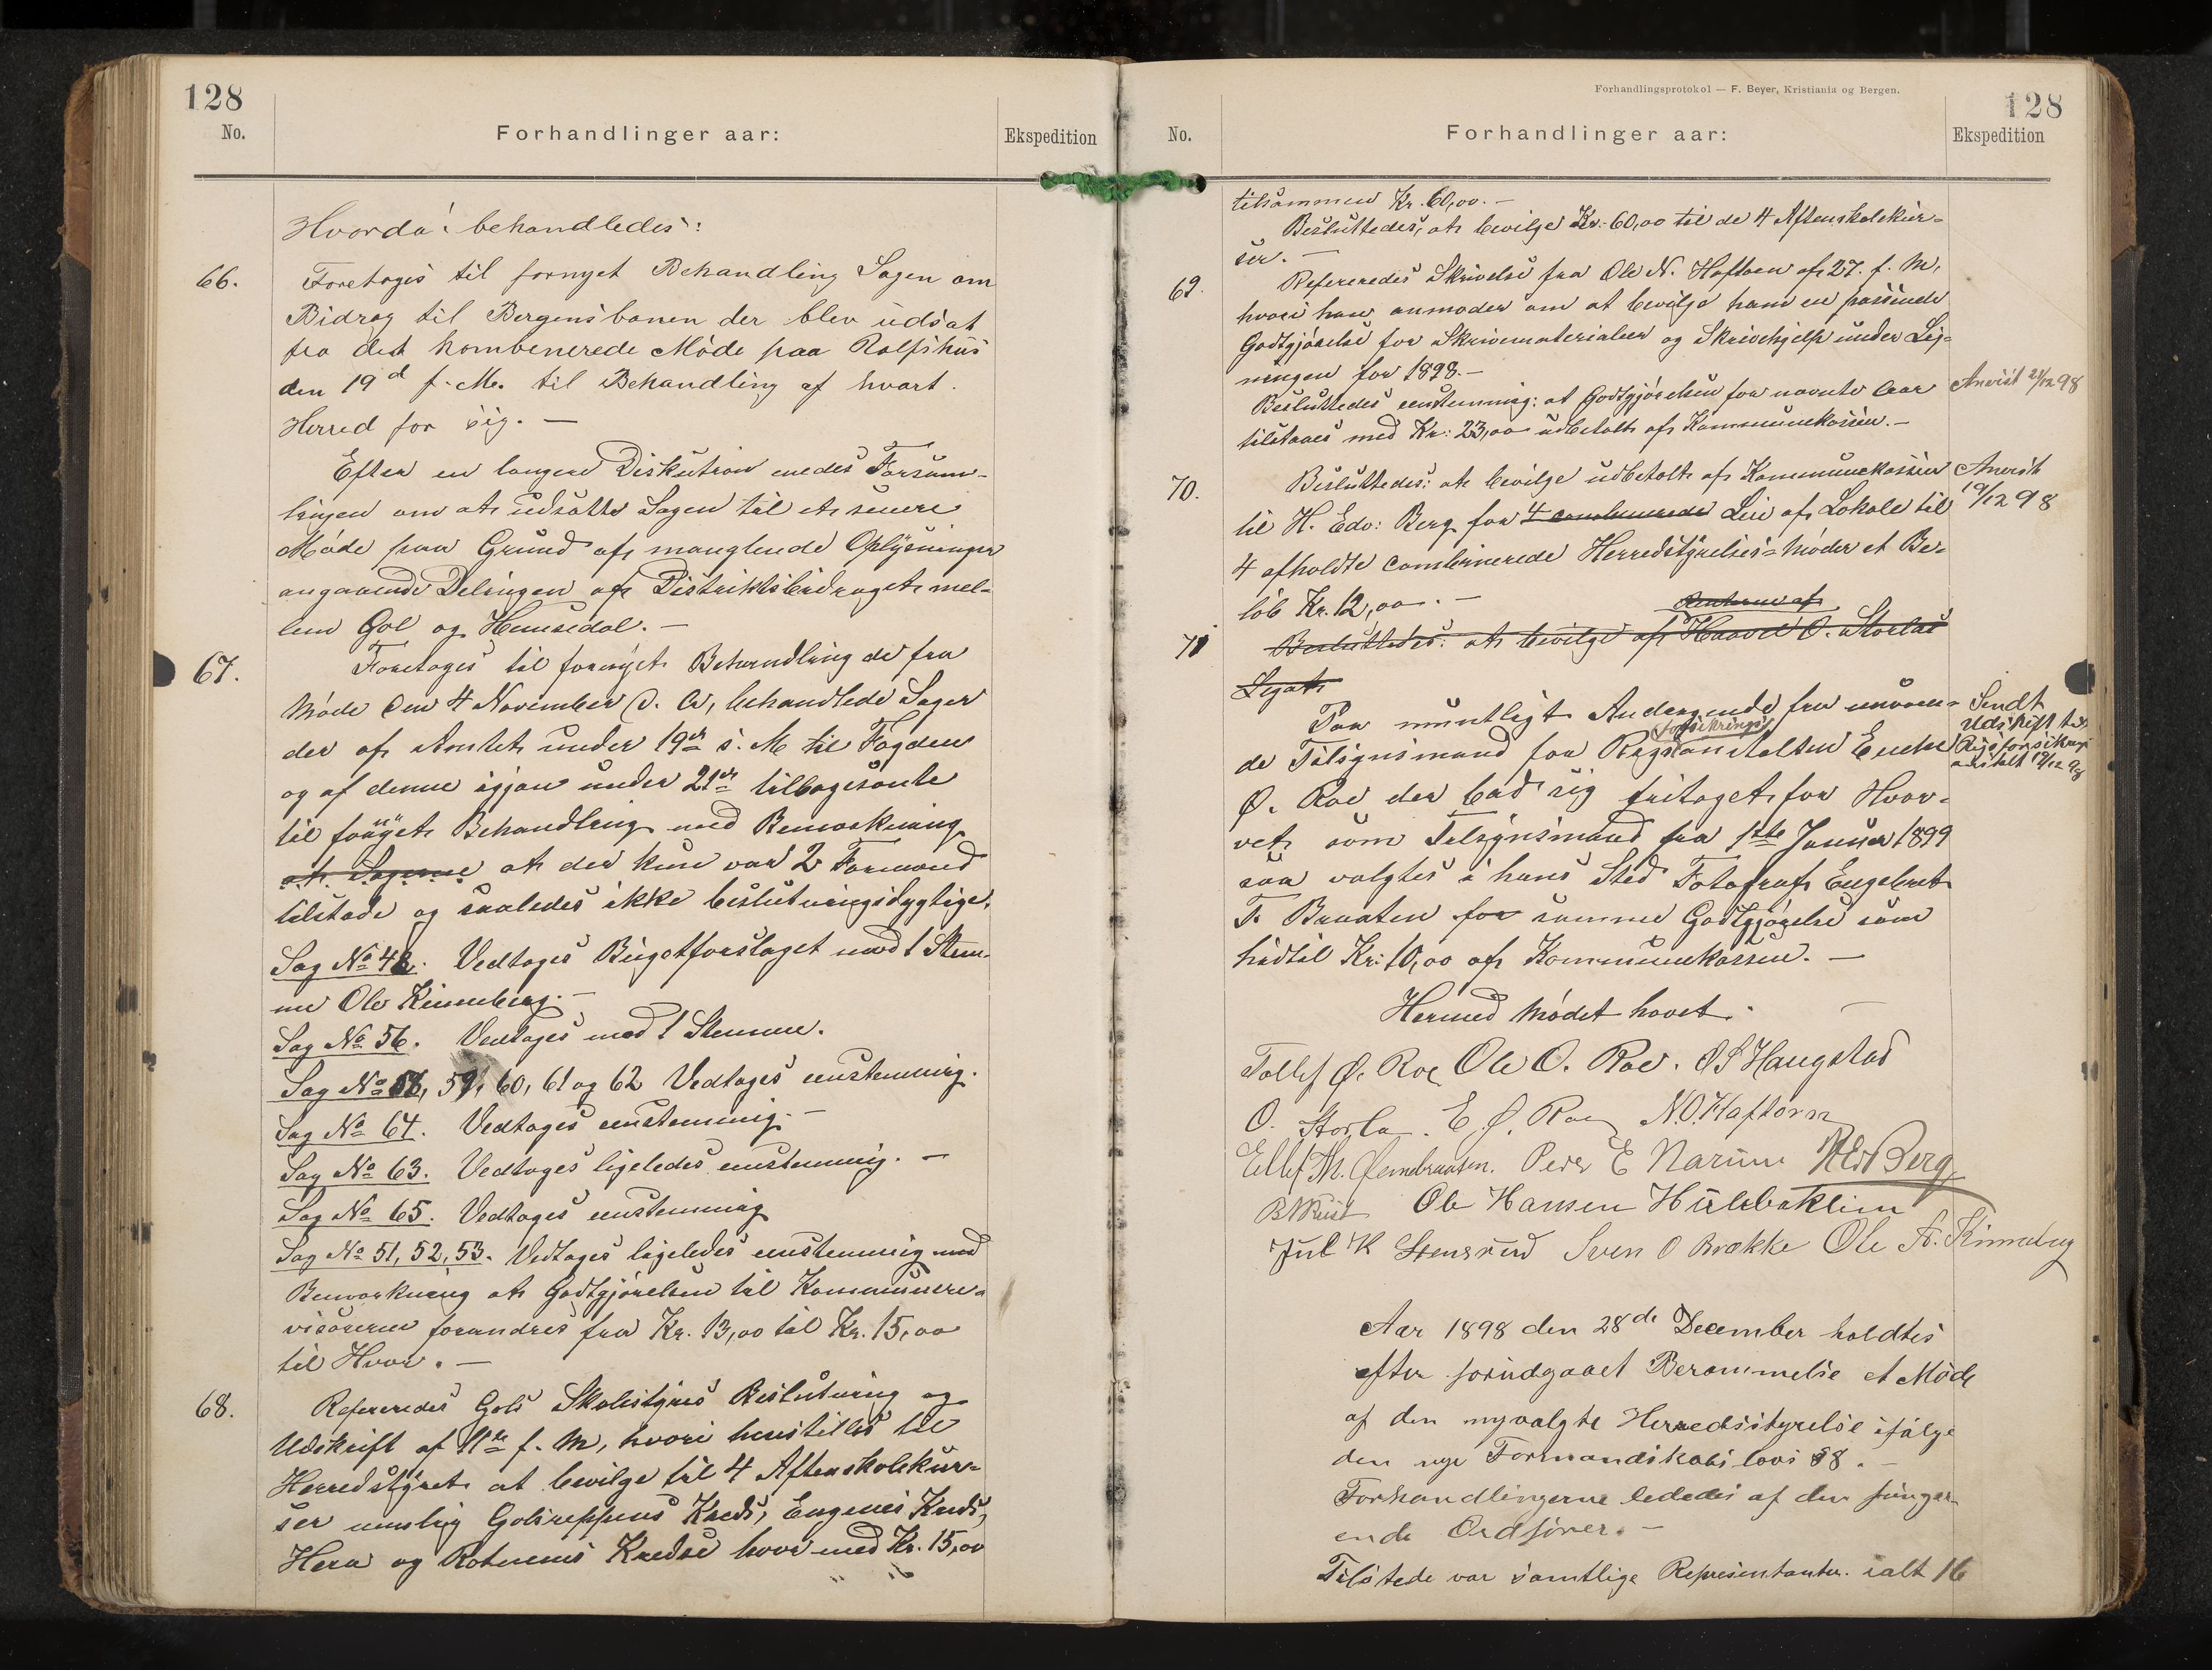 128
No.
Forhandlinger aar:
Ekspedition
Hvorda behandledes:
66.
Foretoges til fornyet Behandling Sagen om
Bidrag til Bergensbanen der blev udsat
fra det kombenerede Møde paa Rolfshus
den 19d f. M. til Behandling af hvart
Herred for sig. —
Efter en længere Diskution enedes Forsam-
lingen om at udsætte Sagen til et senere
Møde paa Grund af manglende Oplysninger
angaaende Delingen af Distriktsbidraget mel-
lem Gol og Hemsedal. —
67.
Foretoges til fornyet Behandling de fra
Møde den 4 November d. A, behandlede Sager
der af Amtet under 19de s. M til Fogden
og af denne igjen under 21de tilbagesente
til fornyet Behandling med Bemærkning
at Sagerne at der kun var 2 Formænd
tilstede og saaledes ikke beslutningsdygtige.
Sag No 48. Vedtoges Bugetforslaget mod 1 Stem-
me Ole Kinneberg. —
Sag No 56. Vedtoges mod 1 Stemme.
Sag No 58, 59, 60, 61 og 62 Vedtoges enstemmig.
Sag No 64. Vedtoges enstemmig. —
Sag No 63. Vedtoges ligeledes enstemmig. —
Sag No 65. Vedtoges enstemmig
Sag No 51, 52, 53. Vedtoges ligeledes enstemmig med
Bemærkning at Godtgjørelsen til Kommunere-
visorerne forandres fra Kr. 13,00 til Kr. 15,00
til Hver. —
68.
Refereredes Gols Skolestyres Beslutning og
Udskrift af 11te f. M, hvori henstilles til
Herredstyret at bevilge til 4 Aftenskolekur-
ser nemlig Golsreppens Kreds, Engenes Kreds,
Hera og Rotnems Kredse hver med Kr. 15,00
Forhandlingsprotokol — F. Beyer, Kristiania og Bergen.
128
No.
Forhandlinger aar:
Ekspedition
tilsammen Kr. 60,00. —
Besluttedes, at bevilge Kr. 60,00 til de 4 Aftenskolekur-
ser. —
69.
Refereredes Skrivelse fra Ole N. Haftorn af 27. f. M,
hvori han anmoder om at bevilge ham en passende
Godtgjørelse for Skrivematerialier og Skrivehjelp under Lig-
ningen for 1898. —
Besluttedes enstemmig: at Godtgjørelsen for nævnte Aar
Anvist 21/12 98
tilstaaes med Kr: 23,00 udbetalt af Kommunekassen. —
70.
Besluttedes: at bevilge udbetalt af Kommunekassen
Anvist
19/12 98
til H. Edv: Berg for 4 combinerede Leie af Lokale til
4 afholdte combinerede Herredstyrelses-Møder et Be-
løb Kr. 12,00. —
Renterne af
71
Besluttedes: at bevilge af Haavel O. Storlas
Legat
Paa muntligt Andragende fra nuværen-
Sendt
Udskrift til
Rigsforsikrings
anstalt 19/12 98
forsikrings
de Tilsynsmand for Rigsanstalten Endre
Ø. Roe der bad sig fritaget for Hver-
vet som Tilsynsmand fra 1ste Januar 1899
saa valgtes i hans Sted Fotograf Engebret
T. Braaten for samme Godtgjørelse som
hidtil Kr: 10,00 af Kommunekassen. —
Hermed Mødet hævet. —
Tollef Ø. Roe Ole O. Roe. O S Haugstad
O. Storla. E. Ø. Roe N. O. Haftorn
Ellef Th. Peder E Narum H Edv Berg
B N Ole Hansen Hulebaklien
Jul K Stensrud Sven O Brække Ole A. Kinneberg
Aar 1898 den 28de December holdtes
efter forudgaaet Berammelse et Møde
af den nyvalgte Herredsstyrelse ifølge
den nye Formandskabs lovs § 8. —
Forhandlingerne lededes af den funger-
ende Ordfører. —
Tilstede var samtlige Representanter ialt 16